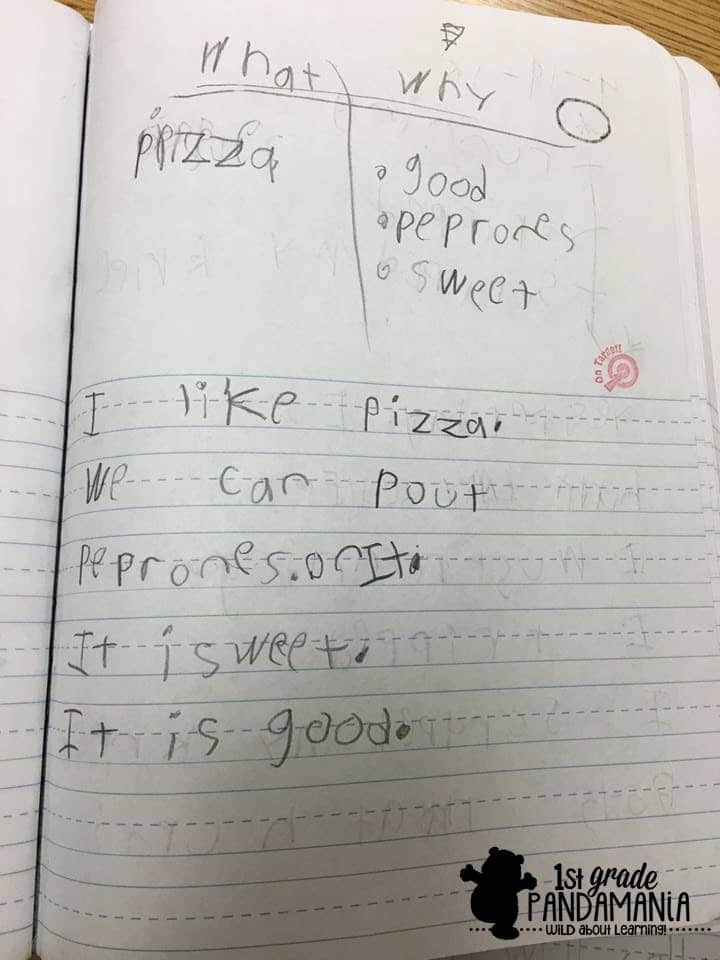 What Why
ppizza
• good
• peprones
• sweet
On Target!
I like pizza.
We can pout
peprones.onIt.
It is weet.
It is good.
1st grade
PANDAMANIA
WILD about Learning!